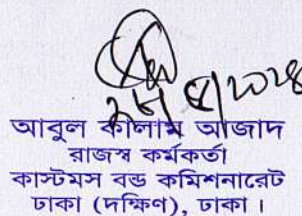 আবুল কালাম আজাদ
রাজস্ব কর্মকর্তা
কাস্টমস বন্ড কমিশনারেট
ঢাকা (দক্ষিণ), ঢাকা ।